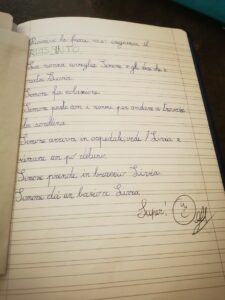 Riscrivi le frasi ed esegui il
RIASSUNTO
La nonna sveglia Simone e gli dice che è
nata Livia.
Simone fa colazione.
Simone parte con i nonni per andare a trovare
la sorellina.
Simone arriva in ospedale, vede Livia e
rimane un po' deluso.
Simone prende in braccio Livia.
Simone dà un bacio a Livia.
Super!